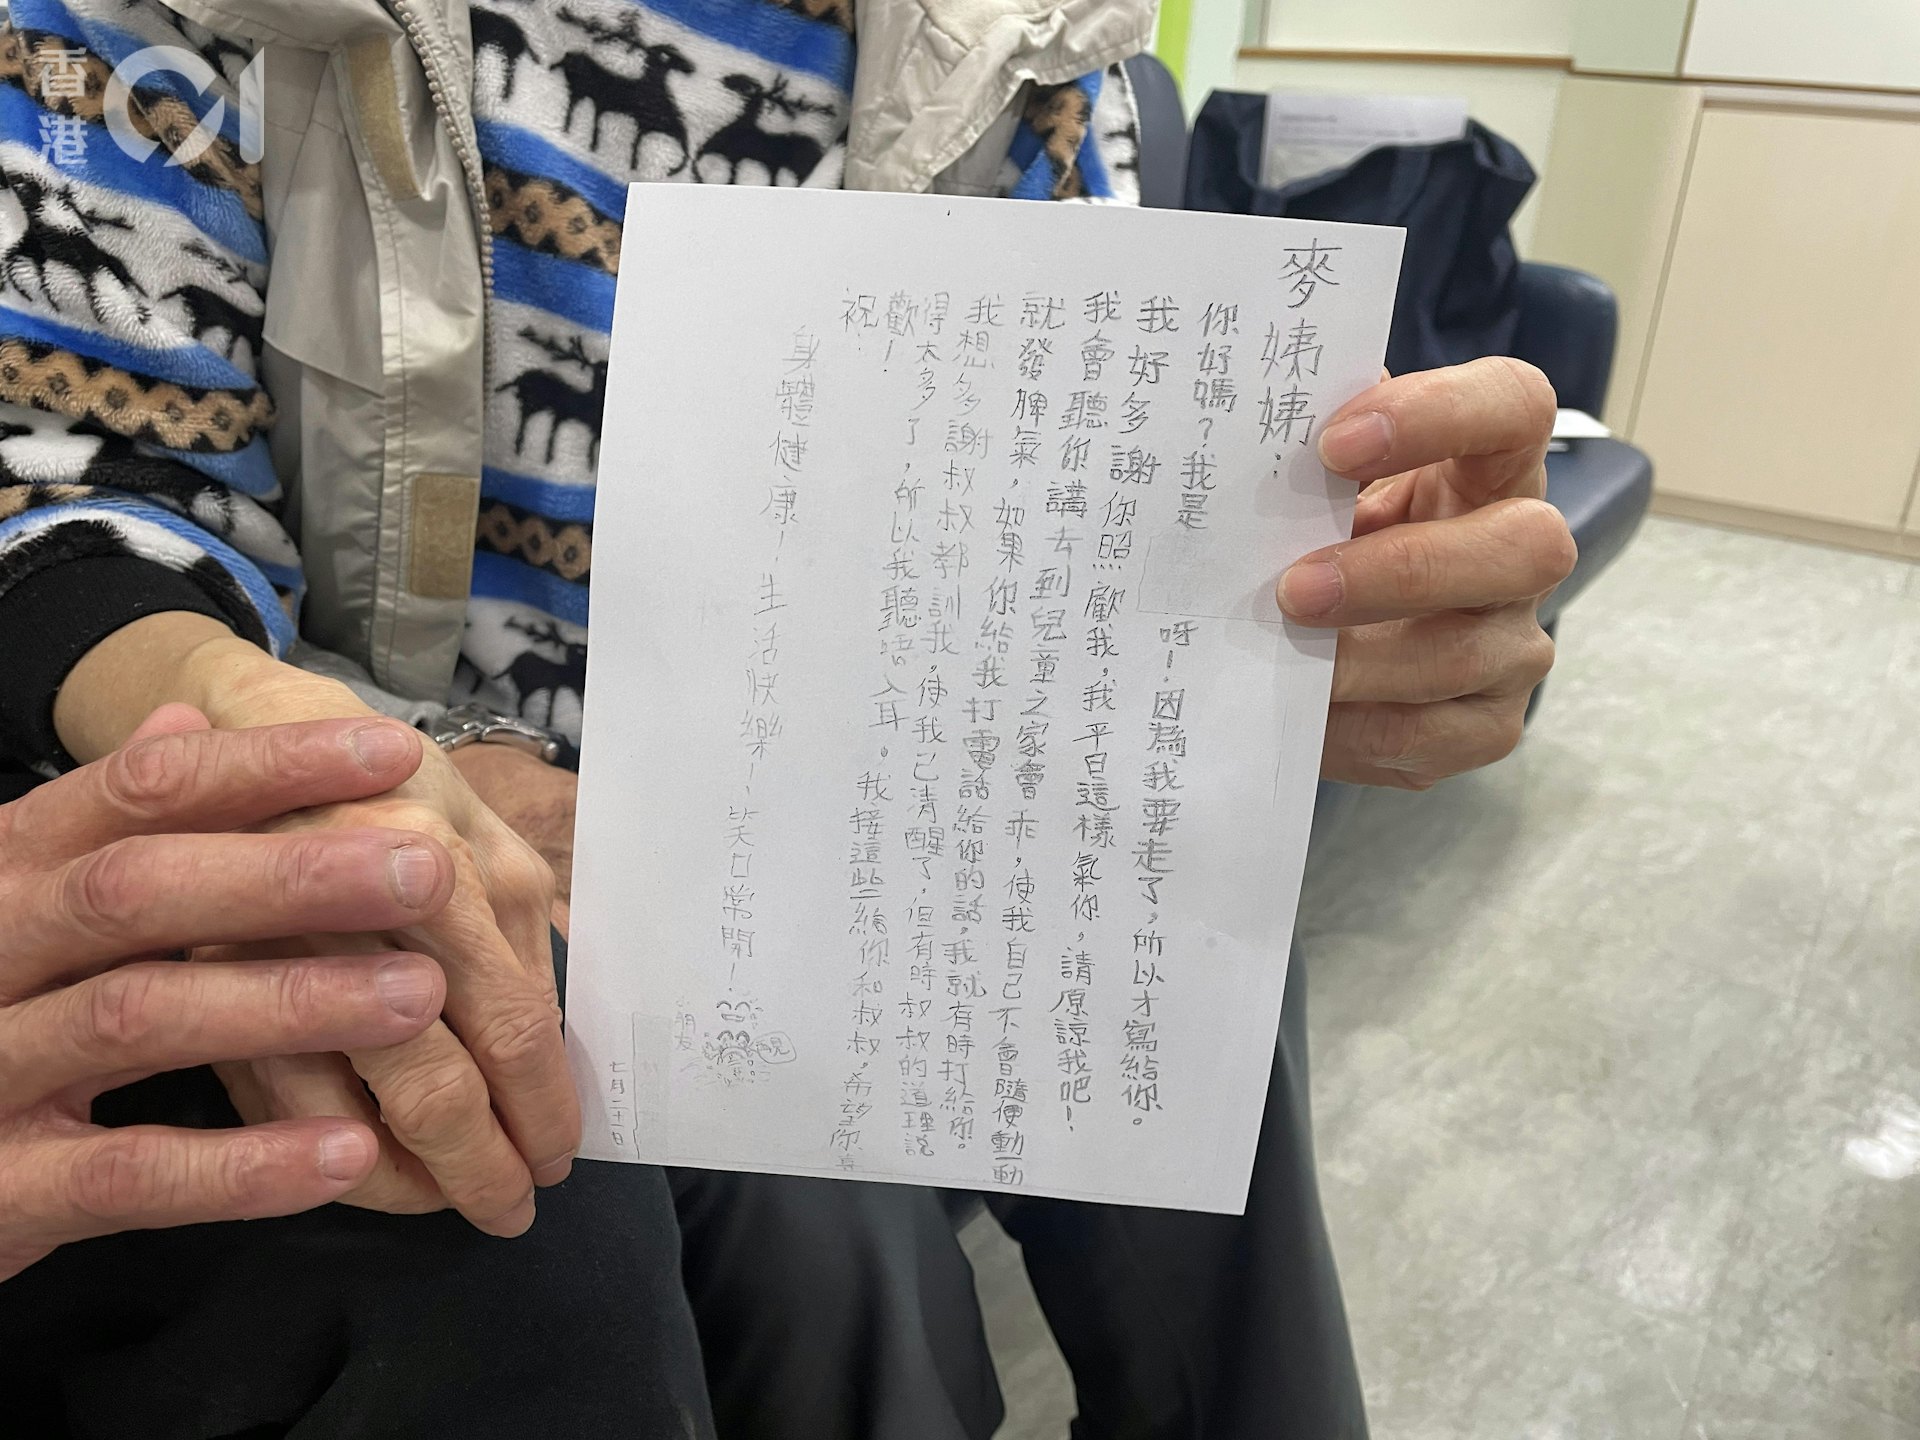 香港01
麥姨姨：
你好嗎？我是
呀！因為我要走了，所以才寫給你。
我好多謝你照顧我，我平日這樣氣你，請原諒我吧！
我會聽你講去到兒童之家會乖，使我自己不會隨便動動
就發脾氣，如果你給我打電話給你的話，我就有時打給你。
我想多謝叔叔教訓我，使我已清醒了，但有時叔叔的道理說
得太多了，所以我聽唔入耳。我接這些給你和叔叔，希望你喜
歡！
祝：
身體健康！生活快樂！笑口常開！
小朋友
七月二十一日